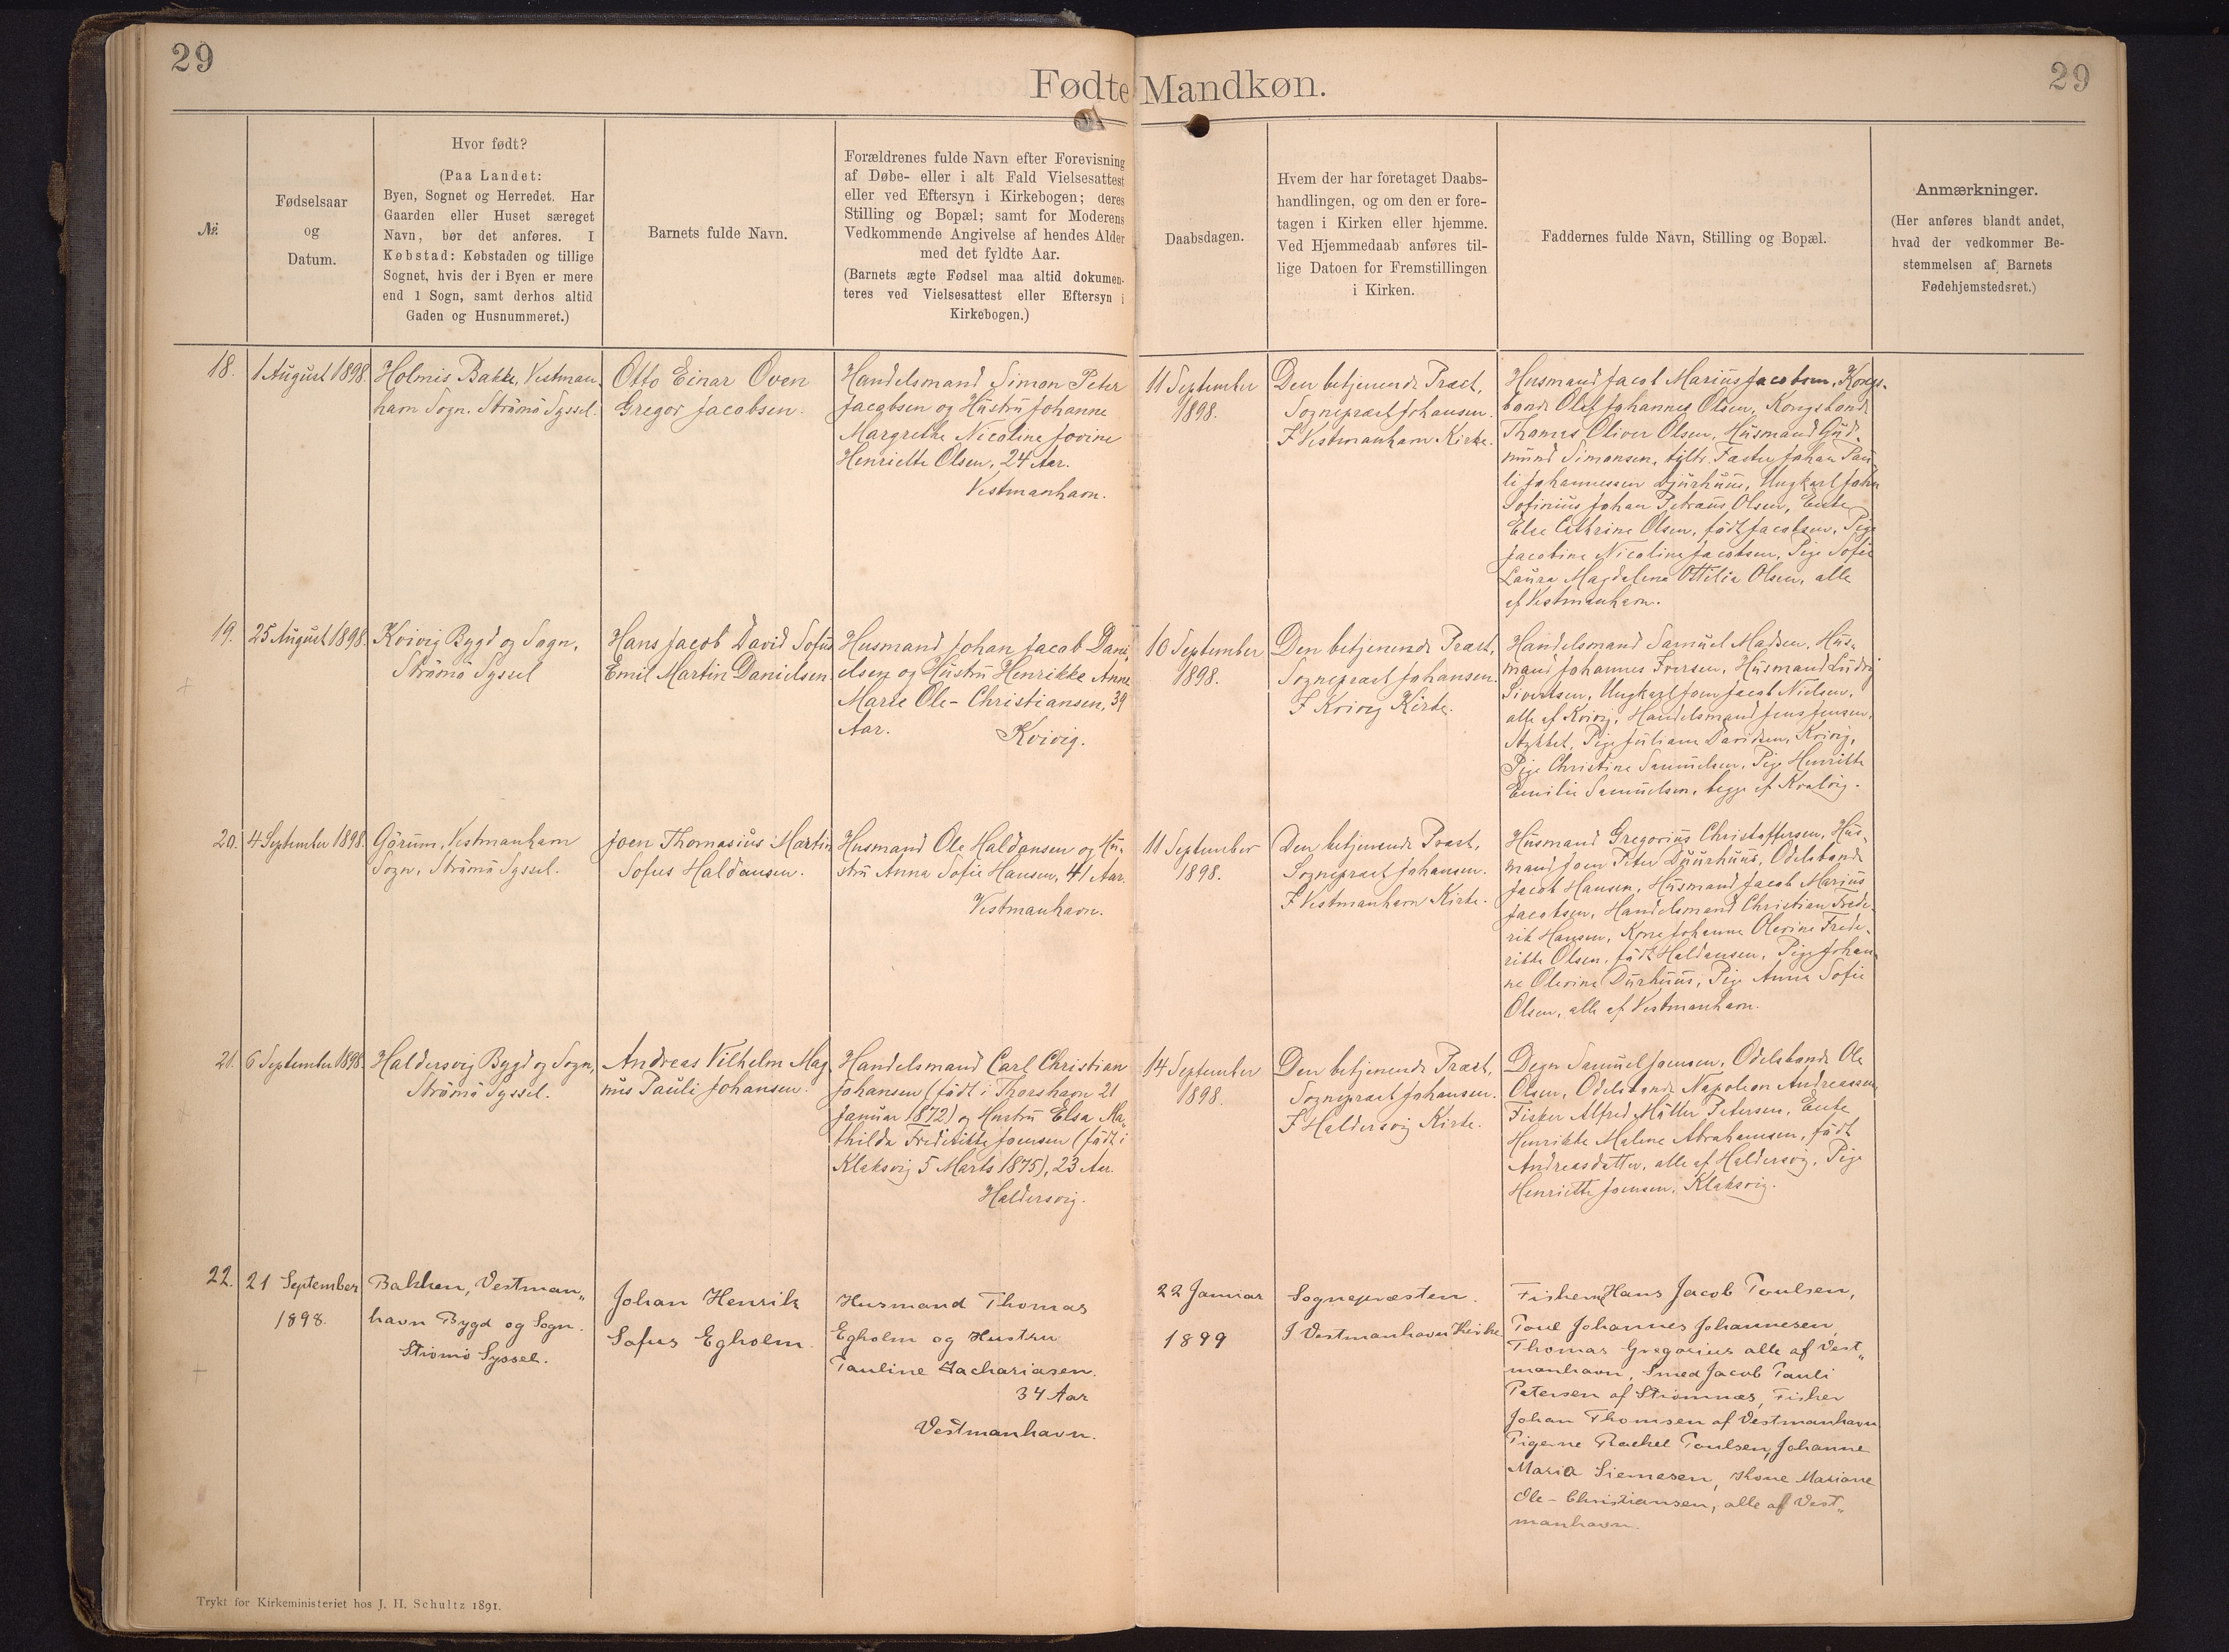 29
29
Fødte Mandkøn.
№
Fødselsaar
og
Datum.
Hvor født?
(Paa Landet:
Byen, Sognet og Herredet. Har
Gaarden eller Huset særeget
Navn, bør det anføres. I
Købstad: Købstaden og tillige
Sognet, hvis der i Byen er mere
end 1 Sogn, samt derhos altid
Gaden og Husnummeret.)
Barnets fulde Navn.
Forældrenes fulde Navn efter Forevisning
af Døbe- eller i alt Fald Vielsesattest
eller ved Eftersyn i Kirkebogen; deres
Stilling og Bopæl; samt for Moderens
Vedkommende Angivelse af hendes Alder
med det fyldte Aar.
(Barnets ægte Fødsel maa altid dokumen-
teres ved Vielsesattest eller Eftersyn i
Kirkebogen.)
Daabsdagen.
Hvem der har foretaget Daabs-
handlingen, og om den er fore-
tagen i Kirken eller hjemme.
Ved Hjemmedaab anføres til-
lige Datoen for Fremstillingen
i Kirken.
Faddernes fulde Navn, Stilling og Bopæl.
Anmærkninger.
(Her anføres blandt andet,
hvad der vedkommer Be-
stemmelsen af Barnets
Fødehjemstedsret.)
18.
1 August 1898.
Holmis Bakke, Vestman-
havn Sogn. Strömö Syssel.
Otto Einar Oven
Gregor Jacobsen.
Handelsmand Simon Peter
Jacobsen og Hustru Johanne
Margrethe Nicoline Jovine
Henriette Olsen, 24 Aar.
Vestmanhavn.
11 September
1898.
Den betjenende Præst,
Sognepræst Johansen.
I Vestmanhavn Kirke.
Husmand Jacob Marius Jacobsen, Kongs-
bonde Olef Johannes Olsen, Kongsbonde
Thomas Oliver Olsen, Husmand Gud-
mund Simonsen, Fæster Johan Pau-
li Johannessen Djurhuus, Ungkarl John
Sofinius Johan Petræus Olsen, Enke
Else Cathrine Olsen, født Jacobsen, Pige
Jacobine Nicoline Jacobsen, Pige Sofie
Laura Magdalena Ottilia Olsen, alle
af Vestmanhavn.
19.
25 August 1898.
Kvivig Bygd og Sogn,
Strömö Syssel
Hans Jacob David Sofus
Emil Martin Danielsen
Husmand Johan Jacob Dani-
elsen og Hustru Henrikke Anne
Marie Ole-Christiansen, 39
Aar.
Kvivig.
10 September
1898.
Den betjenende Præst,
Sognepræst Johansen.
I Kvivig Kirke.
Handelsmand Samuel Madsen, Hus-
mand Johannes Iversen, Husmand Ludvig
Sivertsen, Ungkarl Joen Jacob Nielsen,
alle af Kvivig, Handelsmand Jens Jensen,
Stykket, Pige Juliane Davidsen, Kvivig,
Pige Christine Samuelsen, Pige Henriette
Emilie Samuelsen, begge af Kvalvig.
20.
4 September 1898.
Görum, Vestmanhavn
Sogn, Strömö Syssel.
Joen Thomasius Martin
Sofus Haldansen.
Husmand Ole Haldansen og Hu-
stru Anna Sofie Hansen, 41 Aar.
Vestmanhavn.
11 September
1898.
Den betjenende Præst,
Sognepræst Johansen.
I Vestmanhavn Kirke.
Husmand Gregorius Christoffersen, Hus-
mand Joen Peter Djurhuus, Odelsbonde
Jacob Hansen, Husmand Jacob Marius
Jacobsen, Handelsmand Christian Frede-
rik Hansen, Kone Johanne Olevine Frede-
rikke Olsen, født Haldansen, Pige Johan-
ne Olevine Durhuus, Pige Anna Sofie
Olsen, alle af Vestmanhavn.
21.
6 September 1898.
Haldersvig Bygd og Sogn,
Strömö Syssel.
Andreas Vilhelm Mag
nus Pauli Johansen.
Handelsmand Carl Christian
Johansen (født i Thorshavn 21
Januar 1872) og Hustru Elsa Ma-
thilda Frederikke Joensen (født i
Klaksvig 5 Marts 1875), 23 Aar.
Haldersvig.
14 September
1898.
Den betjenende Præst,
Sognepræst Johansen.
I Haldersvig Kirke.
Degn Samuel Joensen, Odelsbonde Ole
Olsen, Odelsbonde Napoleon Andreassen,
Fisker Alfred Möller Petersen, Enke
Henrikke Malene Abrahamsen, født
Andreasdatter, alle af Haldersvig, Pige
Henriette Joensen, Klaksvig.
22.
21 September
1898.
Bakken, Vestman„
havn Bygd og Sogn.
Strømø Syssel.
Johan Henrik
Sofus Egholm.
Husmand Thomas
Egholm og Hustru
Pauline Zachariasen.
34 Aar
Vestmanhavn.
22 Januar
1899
Sognepræsten.
I Vestmanhavn Kirke
Hans Jacob Poulsen,
Poul Johannes Johannesen,
Thomas Gregorius alle af Vest„
manhavn, Smed Jacob Pauli
Petersen af Strømnæs, Fisker
Johan Thomsen af Vestmanhavn
Pigerne Rachel Poulsen, Johanne
Maria Siemesen, Kone Mariane
Ole-Christiansen, alle af Vest„
manhavn.
Trykt for Kirkeministeriet hos J. H. Schultz 1891.